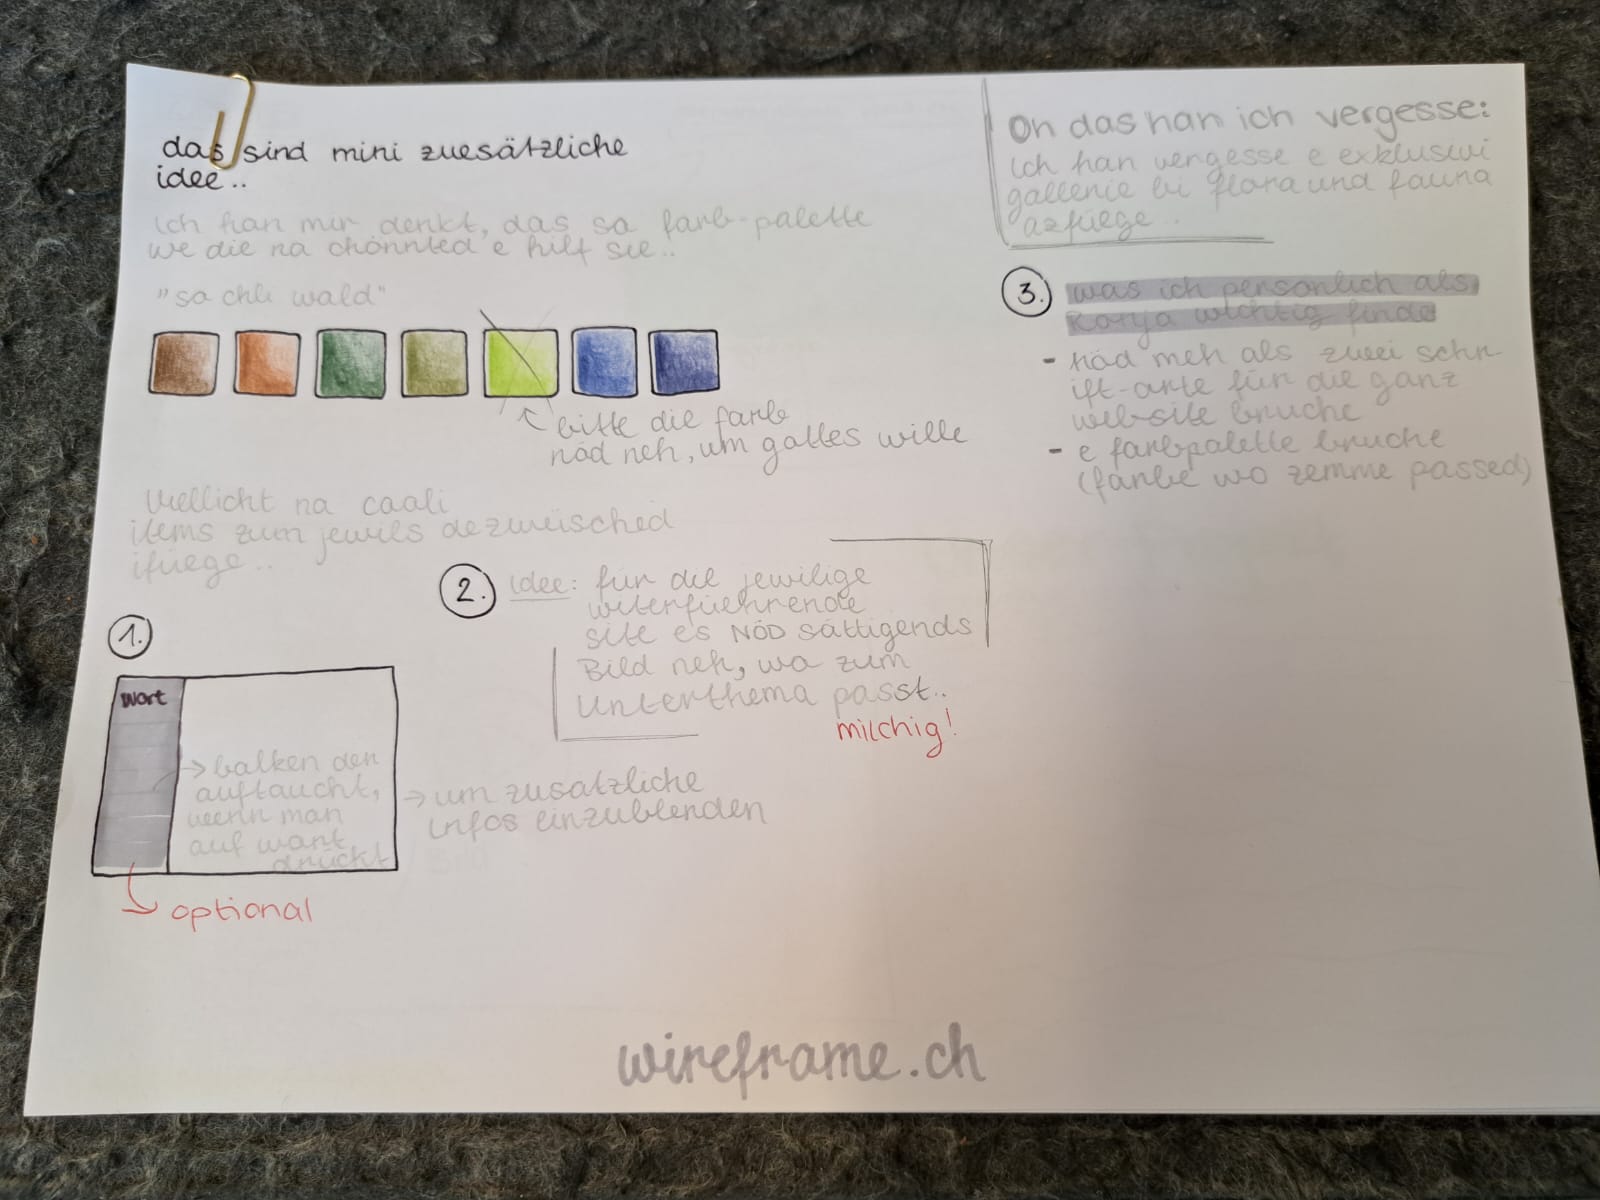 das sind mini zuesätzliche
idee..
ich han mir denkt, das so farb-palette
we die na chönnted e hilf sie..
"so chli wald"
bitte die farb
näd neh, um gottes wille
Viellicht na cooli
items zum jewils dezwüsched
ifüege..
1.
Wort
→ balken der
auftaucht,
wenn man
auf wort
drückt
→ um zusätzliche
infos einzublenden
optional
2. idee: für die jewilige
witerfüehrende
site es NÖD sättigends
Bild neh, wo zum
Unterthema passt..
milchig!
Oh das han ich vergesse:
ich han vergesse e exklusivi
gallerie bi flora und fauna
azfüege..
3. was ich persönlich als
wichtig finde
- näd meh als zwei schr
ift-arte für die ganz
website bruche
- e farbpalette bruche
(farbe wo zemme passed)
wireframe.ch